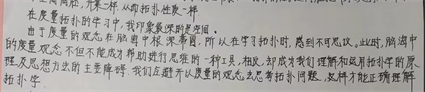 圆周，开集一样，从而拓扑性质一样
在度量拓扑的学习中，我印象最深的是空间。
由于度量的观念在脑海中根深蒂固，所以在学习拓扑时，感到不可思议。此时，脑海中
的度量观念不但不能成为帮助进行思维的一种工具，相反，却成为我们理解和运用拓扑学的原
理及思想方法的主要障碍，我们应避开以度量的观念去思考拓扑问题，这样才能正确理解
拓扑学